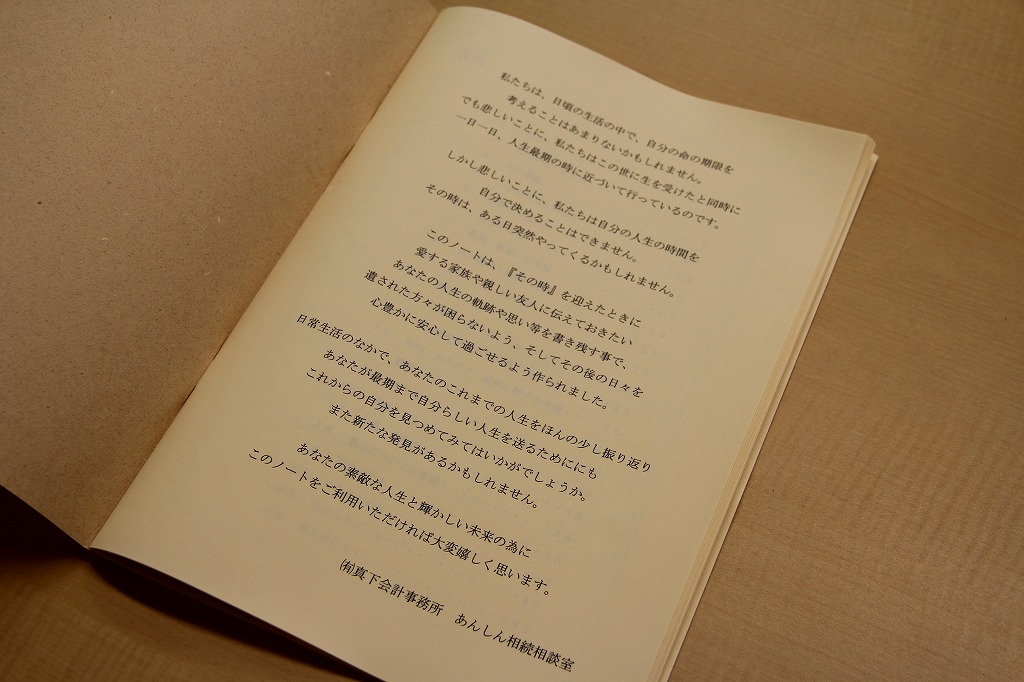 私たちは、日頃の生活の中で、自分の命の期限を
考えることはあまりないかもしれません。
でも悲しいことに、私たちはこの世に生を受けたと同時に
一日一日、人生最期の時に近づいて行っているのです。
しかし悲しいことに、私たちは自分の人生の時間を
自分で決めることはできません。
その時は、ある日突然やってくるかもしれません。
このノートは、『その時』を迎えたときに
愛する家族や親しい友人に伝えておきたい
あなたの人生の軌跡や思い等を書き残す事で、
遺された方々が困らないよう、そしてその後の日々を
心豊かに安心して過ごせるよう作られました。
日常生活のなかで、あなたのこれまでの人生をほんの少し振り返り
あなたが最期まで自分らしい人生を送るためににも
これからの自分を見つめてみてはいかがでしょうか。
また新たな発見があるかもしれません。
あなたの素敵な人生と輝かしい未来の為に
このノートをご利用いただければ大変嬉しく思います。
㈲真下会計事務所　あんしん相続相談室